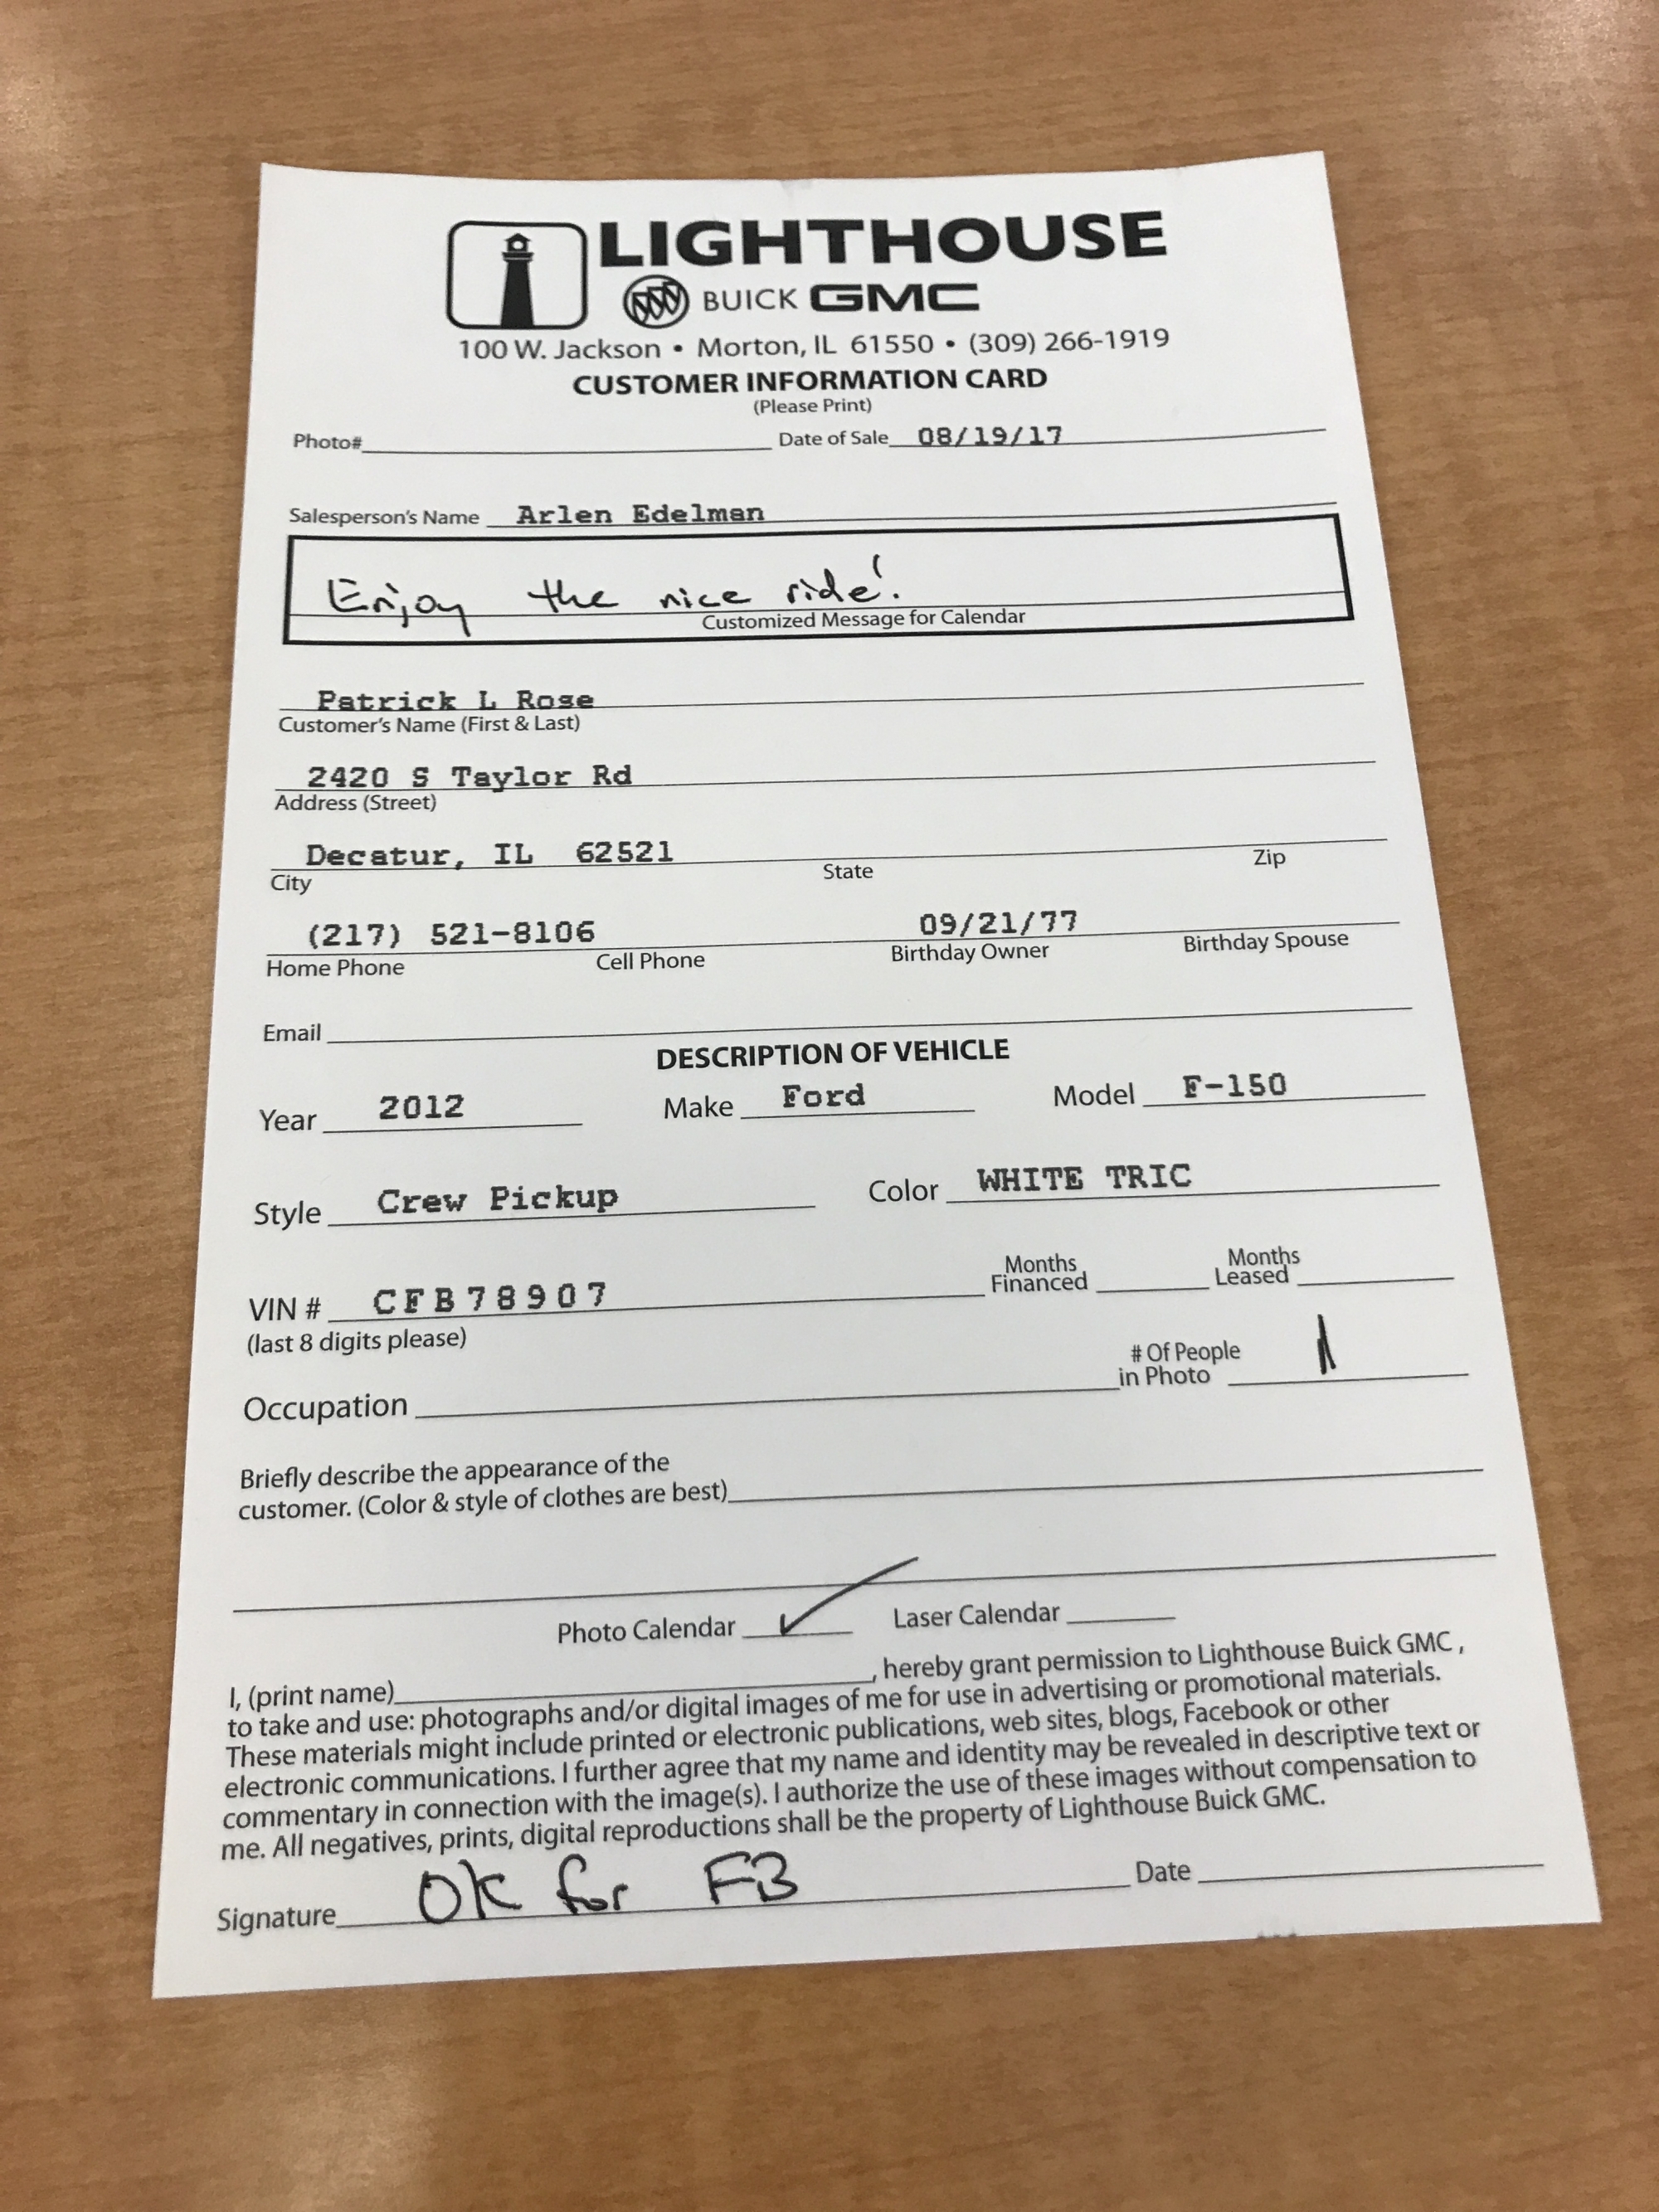 LIGHTHOUSE
BUICK GMC
100 W. Jackson • Morton, IL 61550 • (309) 266-1919
CUSTOMER INFORMATION CARD
(Please Print)
Photo# Date of Sale 08/19/17
Salesperson's Name Arlen Edelman
Enjoy the nice ride!
Customized Message for Calendar
Patrick L Rose
Customer's Name (First & Last)
2420 S Taylor Rd
Address (Street)
Decatur, IL 62521
City State Zip
(217) 521-8106 09/21/77
Home Phone Cell Phone Birthday Owner Birthday Spouse
Email
DESCRIPTION OF VEHICLE
Year 2012 Make Ford Model F-150
Style Crew Pickup Color WHITE TRIC
VIN # CFB78907 Months Financed Months Leased
(last 8 digits please)
Occupation # Of People in Photo 1
Briefly describe the appearance of the
customer. (Color & style of clothes are best)
Photo Calendar ✓ Laser Calendar
I, (print name) , hereby grant permission to Lighthouse Buick GMC ,
to take and use: photographs and/or digital images of me for use in advertising or promotional materials.
These materials might include printed or electronic publications, web sites, blogs, Facebook or other
electronic communications. I further agree that my name and identity may be revealed in descriptive text or
commentary in connection with the image(s). I authorize the use of these images without compensation to
me. All negatives, prints, digital reproductions shall be the property of Lighthouse Buick GMC.
Signature OK for FB Date